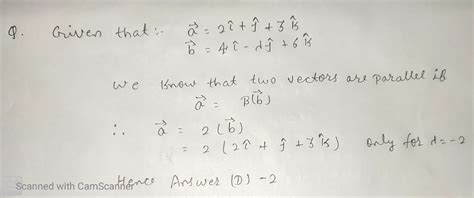 Q. Given that:. a⃗ = 2î + ĵ + 3k̂
b⃗ = 4î - λĵ + 6k̂
we know that two vectors are parallel if
a⃗ = B(b⃗)
∴ a⃗ = 2(b⃗)
= 2(2î + ĵ + 3k̂) only for λ=-2
Hence Answer (D) -2
Scanned with CamScanner